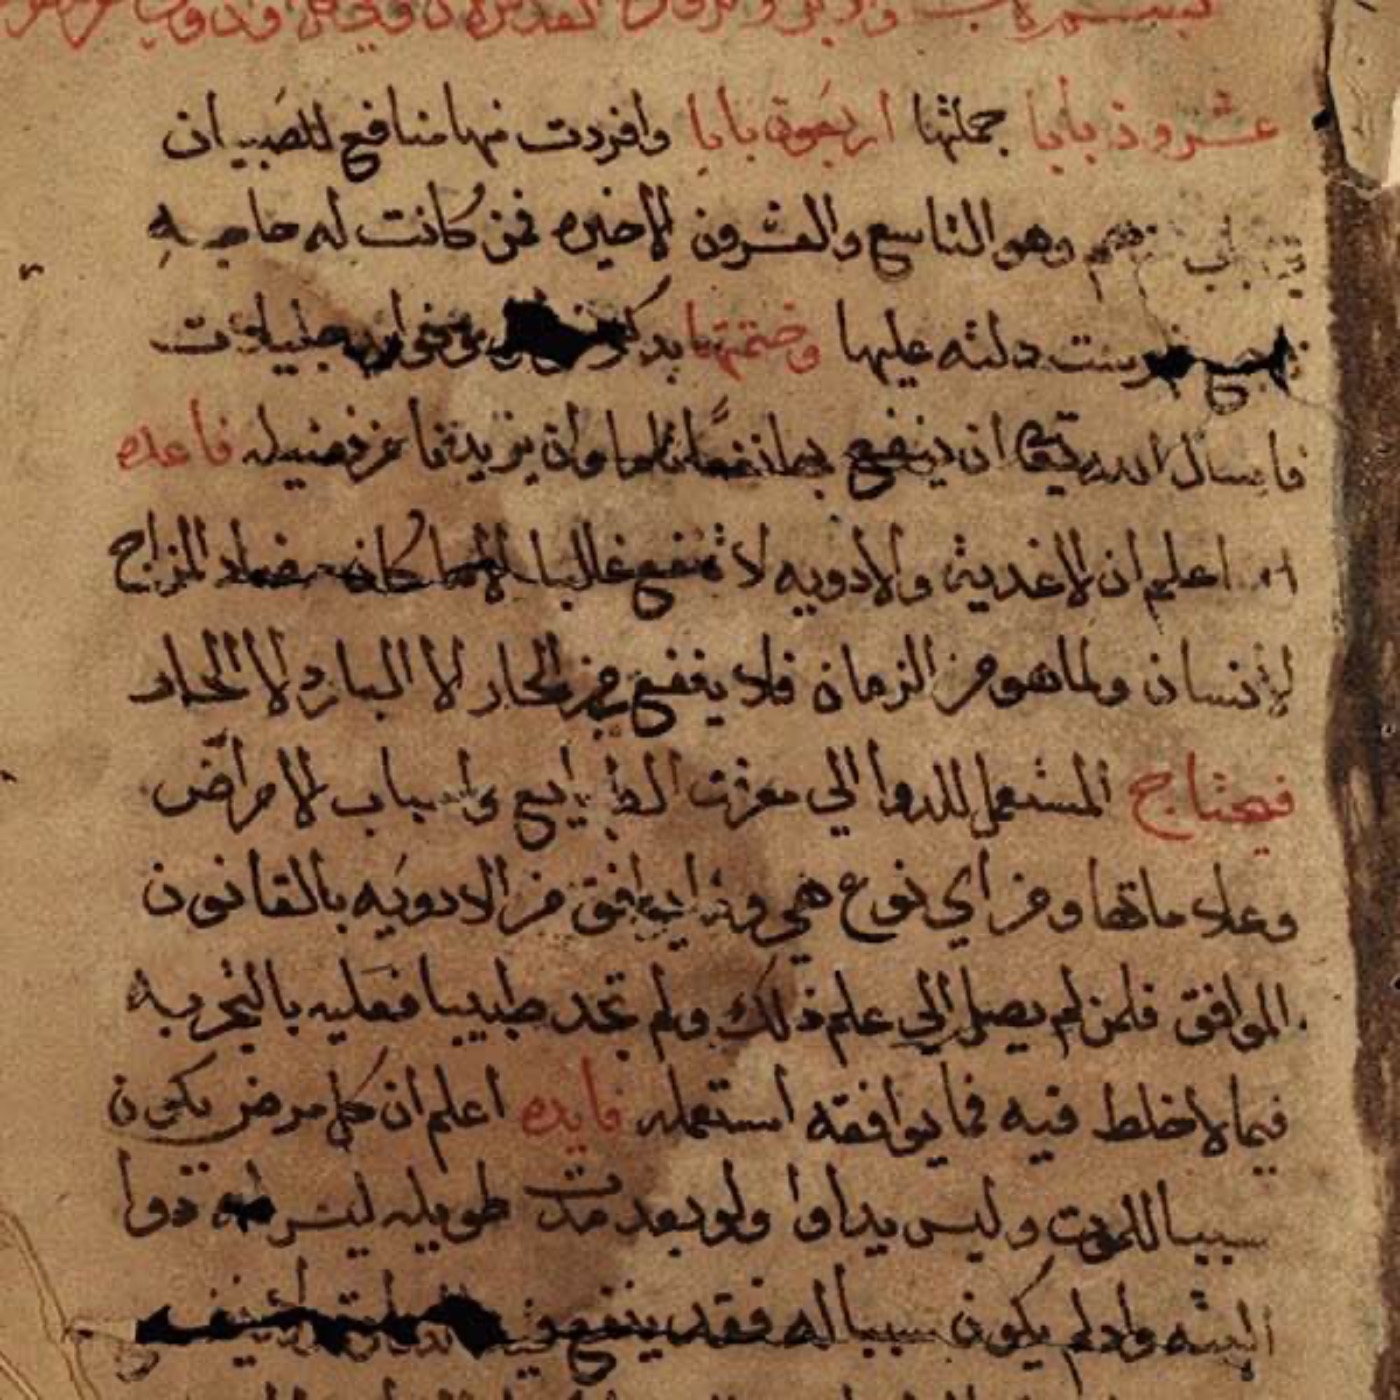 عشرون بابا جملتها اربعون بابا وافردت منها منافع للصبيان
وهو التاسع والعشرون الاخيره فمن كانت له حاجه
دلته عليها وختمتها بذكر
فاسال الله تعالى ان ينفع بها نفعا وان يزيدنا من فضله قاعده
اعلم ان الاغدية والادويه لا تنفع غالبا الا لما كان مضاد المزاج
الانسان ولما هو من الزمان فلا ينفع من الحار الا البارد لا الحار
فيحتاج المستعمل للدوا الي معرفت الطبايع واسباب الامراض
وعلاماتها ومن اي نوع هي وما يوافق من الادويه بالقانون
الموافق فلمن لم يصل الي علم ذلك ولم تجد طبيبا فعليه بالتجربه
فيما لا خلط فيه فما يوافقه استعمله فايده اعلم ان كل مرض يكون
سببا للموت وليس يداوا ولو بعد مدت طويله ليس له دوا
البته واد لم يكون سببا له فقد ينفع فيه